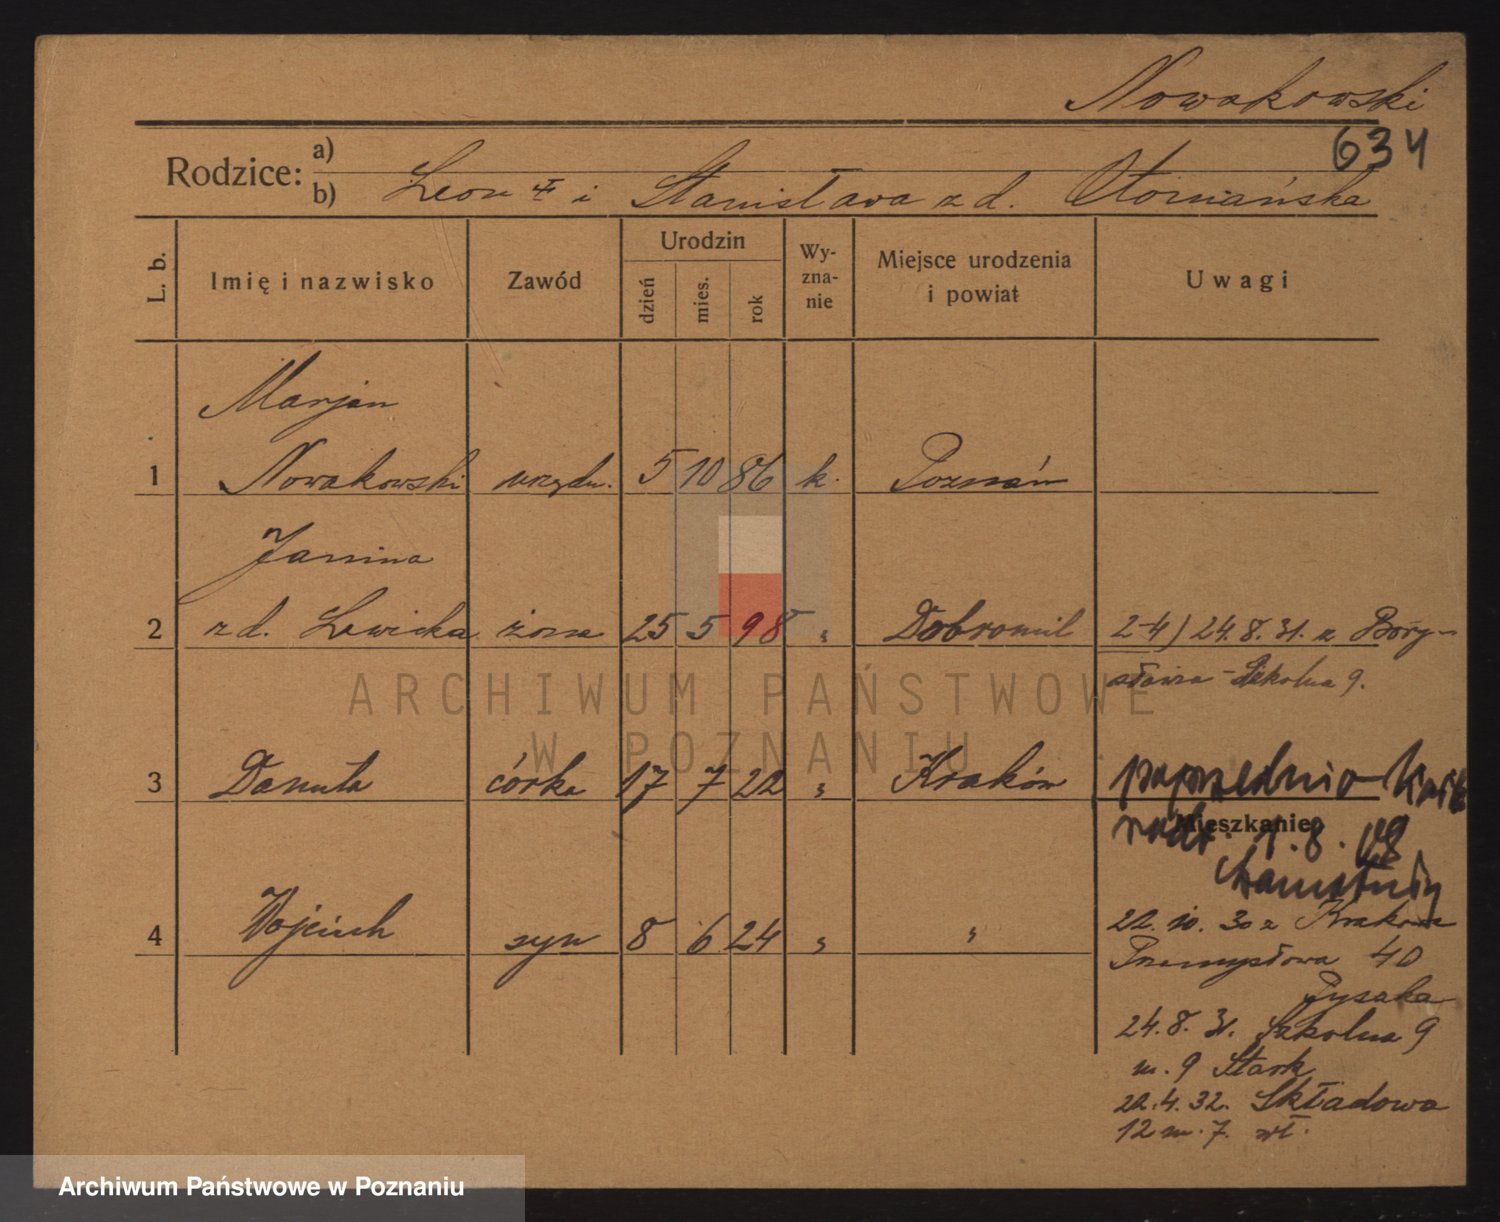 Nowakowski
634
Rodzice: a)
b) Leon i Stanisława z d.
L. b. Imię i nazwisko Zawód Urodzin dzień mies. rok Wy-zna-nie Miejsce urodzenia i powiat Uwagi
Marjan
1 Nowakowski urzędn. 5 10 86 k. Poznań
Janina
2 z d. Lewicka żona 25 5 98 " Dobromil 2-4) 24.8.31. z Bory-
sławia - Szkolna 9.
ARCHIWUM PAŃSTWOWE
W POZNANIU
3 Danuta córka 17 7 22 " Kraków poprzednio
Mieszkanie
1.8.08
4 Wojciech syn 8 6 24 " "
22.10.30 z Krakowa
Przemysłowa 40
24.8.31. Szkolna 9
m. 9 Stark
22.4.32. Składowa
12 m. 7. wł.
Archiwum Państwowe w Poznaniu